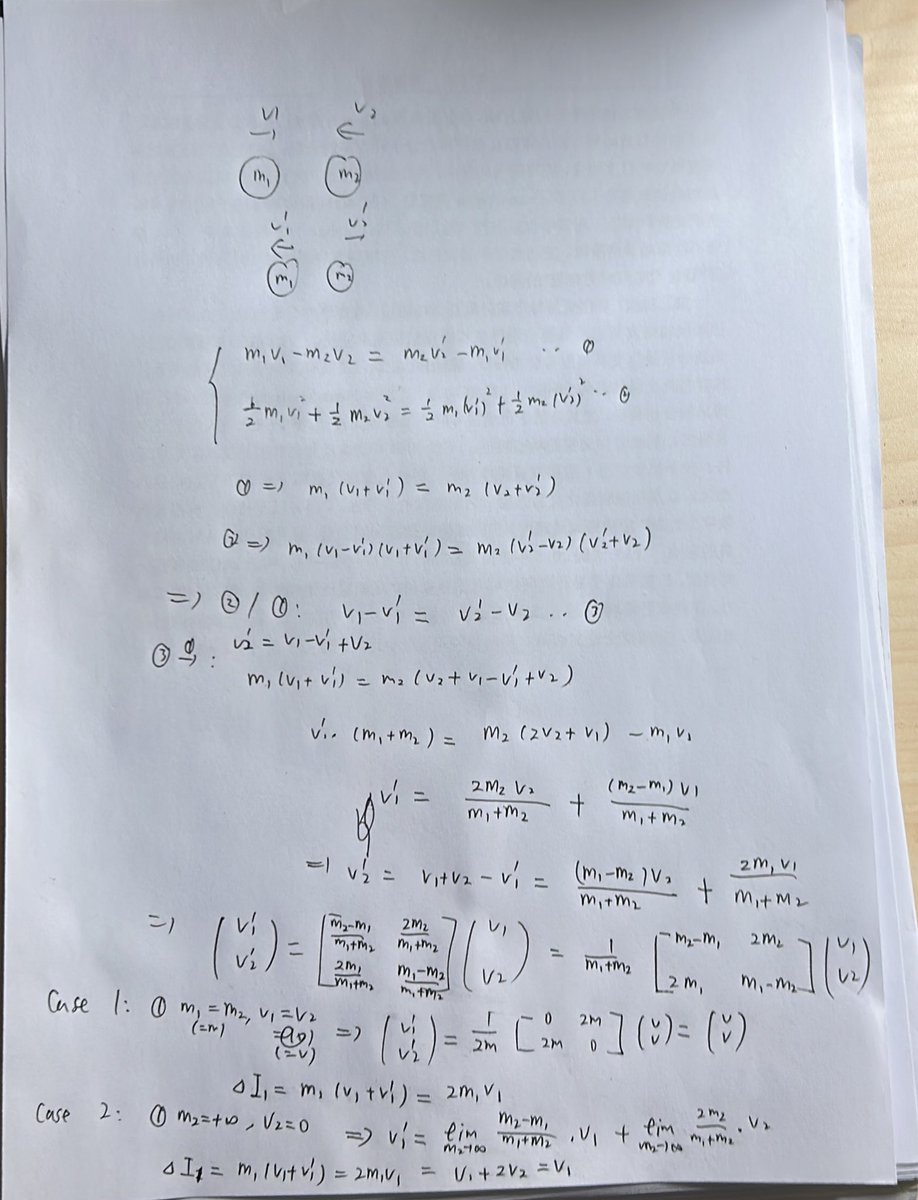 v₁ v₂
→ ←
m₁ m₂
v₁' v₂'
← →
m₁ m₂
m₁v₁ - m₂v₂ = m₂v₂' - m₁v₁' ·· ①
½m₁v₁² + ½m₂v₂² = ½m₁(v₁')² + ½m₂(v₂')² ·· ②
① => m₁(v₁+v₁') = m₂(v₂+v₂')
② => m₁(v₁-v₁')(v₁+v₁') = m₂(v₂'-v₂)(v₂'+v₂)
=> ②/①: v₁-v₁' = v₂'-v₂ ·· ③
③ ①→: v₂' = v₁-v₁'+v₂
m₁(v₁+v₁') = m₂(v₂+v₁-v₁'+v₂)
v₁'·(m₁+m₂) = m₂(2v₂+v₁) - m₁v₁
v₁' = 2m₂v₂/(m₁+m₂) + (m₂-m₁)v₁/(m₁+m₂)
=> v₂' = v₁+v₂-v₁' = (m₁-m₂)v₂/(m₁+m₂) + 2m₁v₁/(m₁+m₂)
=> (v₁' ; v₂') = [(m₂-m₁)/(m₁+m₂) 2m₂/(m₁+m₂) ; 2m₁/(m₁+m₂) (m₁-m₂)/(m₁+m₂)] (v₁ ; v₂) = 1/(m₁+m₂) [m₂-m₁ 2m₂ ; 2m₁ m₁-m₂] (v₁ ; v₂)
Case 1: ① m₁=m₂, v₁=v₂ (=m) (=v) => (v₁' ; v₂') = 1/2m [0 2m ; 2m 0] (v ; v) = (v ; v)
ΔI₁ = m₁(v₁+v₁') = 2m₁v₁
Case 2: ① m₂=+∞, v₂=0 => v₁' = lim m₂→∞ (m₂-m₁)/(m₁+m₂) · v₁ + lim m₂→∞ 2m₂/(m₁+m₂) · v₂
ΔI₁ = m₁(v₁+v₁') = 2m₁v₁ = v₁+2v₂ = v₁